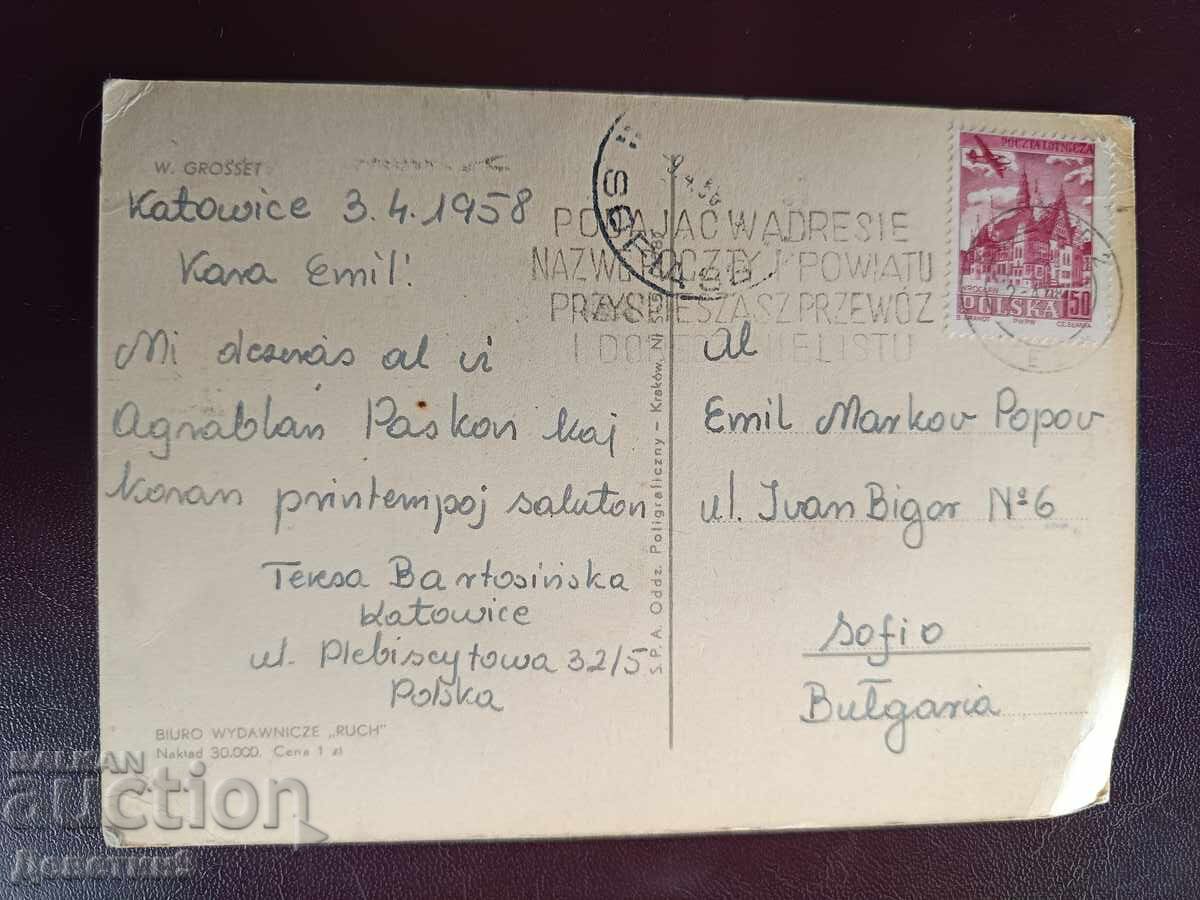 W. GROSSET
Katowice 3.4.1958
Kara Emil!
Mi deziras al vi
Agrablan Paskon kaj
koran printempoj saluton
Teresa Bartosińska
Katowice
ul. Plebiscytowa 32/5
Polska
BIURO WYDAWNICZE „RUCH"
Nakład 30.000. Cena 1 zł
S.P.A. Oddz. Poligraficzny – Kraków, Nr
PODAJĄC W ADRESIE
NAZWĘ POCZTY I POWIATU
PRZYSPIESZASZ PRZEWÓZ
POCZTA LOTNICZA
WROCŁAW
POLSKA 150
PWPW
Al
Emil Markov Popov
ul. Ivan Bigor Nº 6
Sofio
Bułgaria
BALKAN
auction